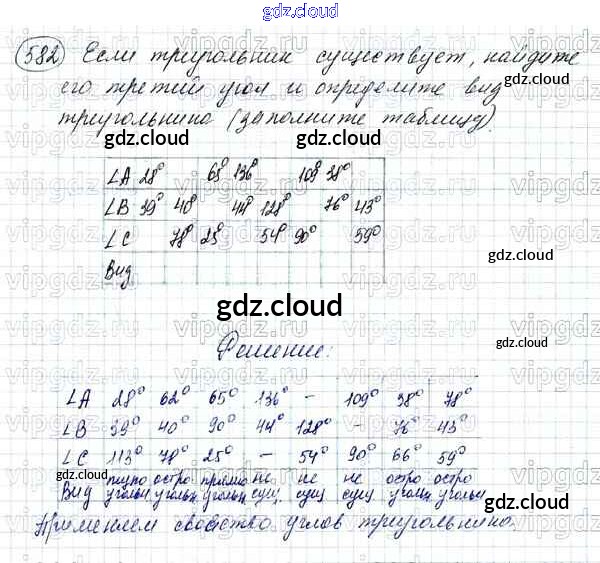 gdz.cloud
582 Если треугольник существует, найдите
его третий угол и определите вид
треугольника (заполните таблицу).
gdz.cloud gdz.cloud
∠A 28° 65° 136° 109° 38°
∠B 39° 40° 44° 128° 76° 43°
∠C 78° 25° 54° 90° 59°
Вид
gdz.cloud
Решение:
gdz.cloud
∠A 28° 62° 65° 136° – 109° 38° 78°
∠B 39° 40° 90° 44° 128° – 76° 43°
∠C 113° 78° 25° – 54° 90° 66° 59°
gdz.cloud gdz.cloud
Вид тупоугольн остроугольн прямоугольн не сущ. не сущ не сущ остроугольн остроугольн
gdz.cloud
Применяем свойство углов треугольника.
gdz.cloud